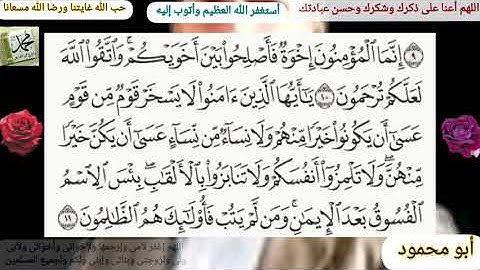 اللهم أعنا على ذكرك وشكرك وحسن عبادتك
أستغفر الله العظيم وأتوب إليه
حب الله غايتنا ورضا الله مسعانا
محمد
٩ إِنَّمَا الْمُؤْمِنُونَ إِخْوَةٌ فَأَصْلِحُوا بَيْنَ أَخَوَيْكُمْ ۚ وَاتَّقُوا اللَّهَ
لَعَلَّكُمْ تُرْحَمُونَ ١٠ يَا أَيُّهَا الَّذِينَ ءَامَنُوا لَا يَسْخَرْ قَوْمٌ مِّن قَوْمٍ
عَسَىٰ أَن يَكُونُوا خَيْرًا مِّنْهُمْ وَلَا نِسَاءٌ مِّن نِّسَاءٍ عَسَىٰ أَن يَكُنَّ خَيْرًا
مِّنْهُنَّ ۖ وَلَا تَلْمِزُوا أَنفُسَكُمْ وَلَا تَنَابَزُوا بِالْأَلْقَابِ ۖ بِئْسَ الِاسْمُ
الْفُسُوقُ بَعْدَ الْإِيمَانِ ۚ وَمَن لَّمْ يَتُبْ فَأُولَٰئِكَ هُمُ الظَّالِمُونَ ١١
أبو محمود